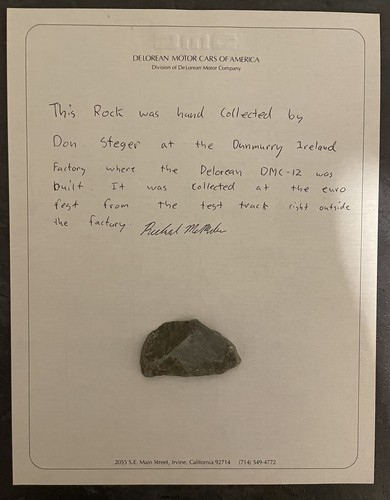 DMC
DE LOREAN MOTOR CARS OF AMERICA
Division of De Lorean Motor Company
This Rock was hand collected by
Don Steger at the Dunmurry Ireland
Factory where the Delorean DMC-12 was
built. It was collected at the euro
fest from the test track right outside
the factory.
2055 S.E. Main Street, Irvine, California 92714 (714) 549-4772